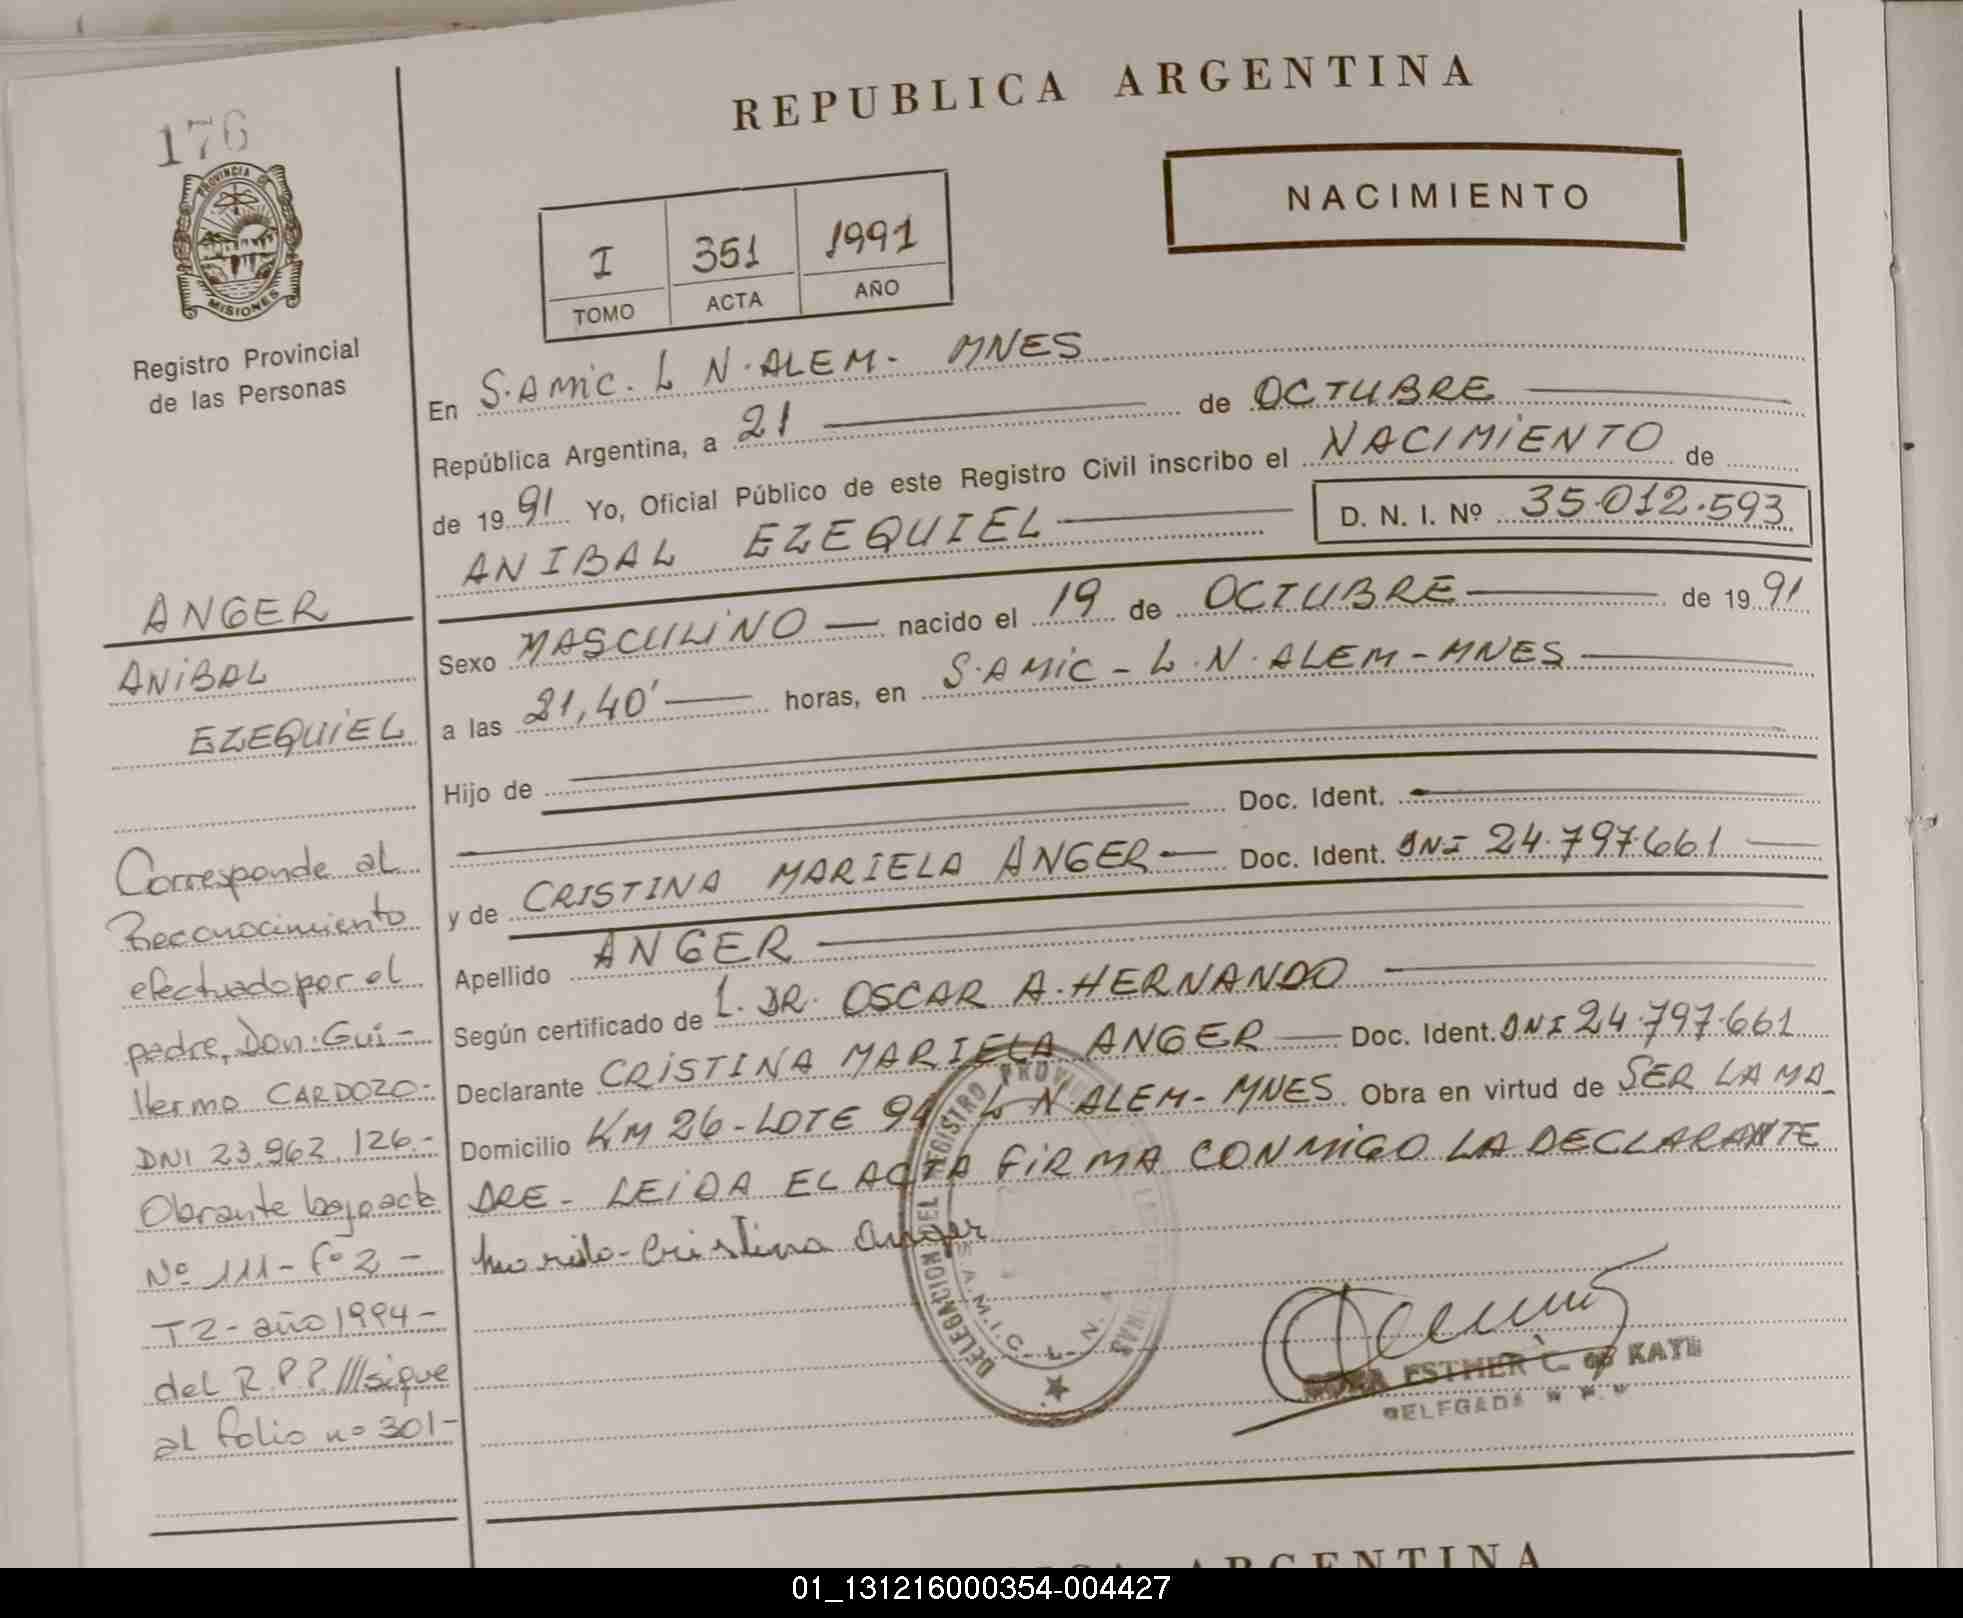 REPUBLICA ARGENTINA
176
NACIMIENTO
PROVINCIA DE
MISIONES
I 351 1991
TOMO ACTA AÑO
Registro Provincial
de las Personas
En S.AMIC. L N. ALEM - MNES
República Argentina, a 21 de OCTUBRE
de 19 91 Yo, Oficial Público de este Registro Civil inscribo el NACIMIENTO de
ANIBAL EZEQUIEL D. N. I. Nº 35.012.593
Sexo MASCULINO nacido el 19 de OCTUBRE de 19 91
a las 21,40' horas, en S.AMIC - L.N. ALEM - MNES
Hijo de
Doc. Ident.
y de CRISTINA MARIELA ANGER Doc. Ident. DNI 24.797.661
Apellido ANGER
Según certificado de L. DR. OSCAR A. HERNANDO
Declarante CRISTINA MARIELA ANGER Doc. Ident. DNI 24.797.661
Domicilio KM 26 - LOTE 94 L N. ALEM - MNES Obra en virtud de SER LA MA-
DRE - LEIDA EL ACTA FIRMA CONMIGO LA DECLARANTE
Cristina Anger
ANGER
ANIBAL
EZEQUIEL
Corresponde al
Reconocimiento
efectuado por el
padre, Don: Gui-
llermo CARDOZO-
DNI 23.962.126.-
Obrante bajo acta
Nº 111 - Fº 2 -
T2 - año 1994 -
del R.P.P. ///sigue
al folio nº 301-
DELEGACION DEL REGISTRO
S.A.M.I.C. L. N.
ESTHER C. DE KAYE
DELEGADA
ARGENTINA
01_131216000354-004427